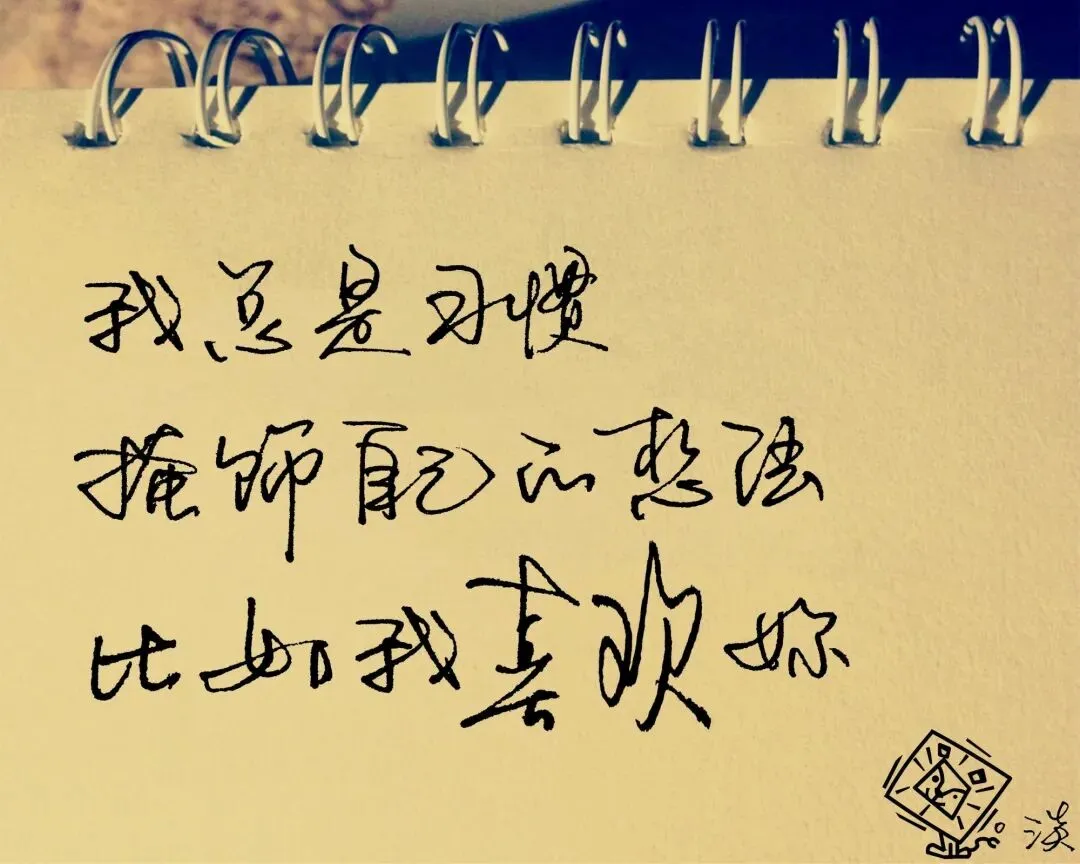 我总是习惯
掩饰自己的想法
比如我喜欢妳
淡